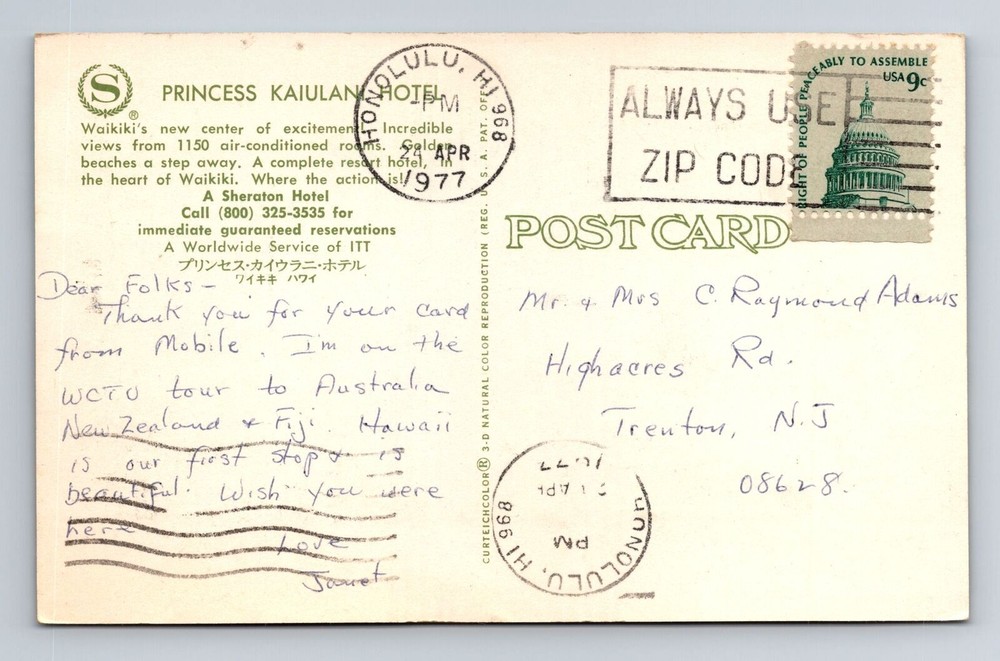 S
®
PRINCESS KAIULANI HOTEL
Waikiki's new center of excitement. Incredible
views from 1150 air-conditioned rooms. Golden
beaches a step away. A complete resort hotel, in
the heart of Waikiki. Where the action is!
A Sheraton Hotel
Call (800) 325-3535 for
immediate guaranteed reservations
A Worldwide Service of ITT
プリンセス・カイウラニ・ホテル
ワイキキ ハワイ
Dear Folks -
Thank you for your card
from Mobile. I'm on the
WCTU tour to Australia
New Zealand & Fiji. Hawaii
is our first stop & is
beautiful. Wish you were
here
Love
Janet
CURTEICHCOLOR® 3-D NATURAL COLOR REPRODUCTION (REG. U.S.A. PAT. OFF.
HONOLULU, HI 968
-PM
24 APR
1977
ALWAYS USE
ZIP CODE
RIGHT OF PEOPLE PEACEABLY TO ASSEMBLE
USA 9c
POST CARD
Mr. & Mrs C. Raymond Adams
Highacres Rd.
Trenton, N.J
08628.
HONOLULU, HI 968
PM
APR
1977